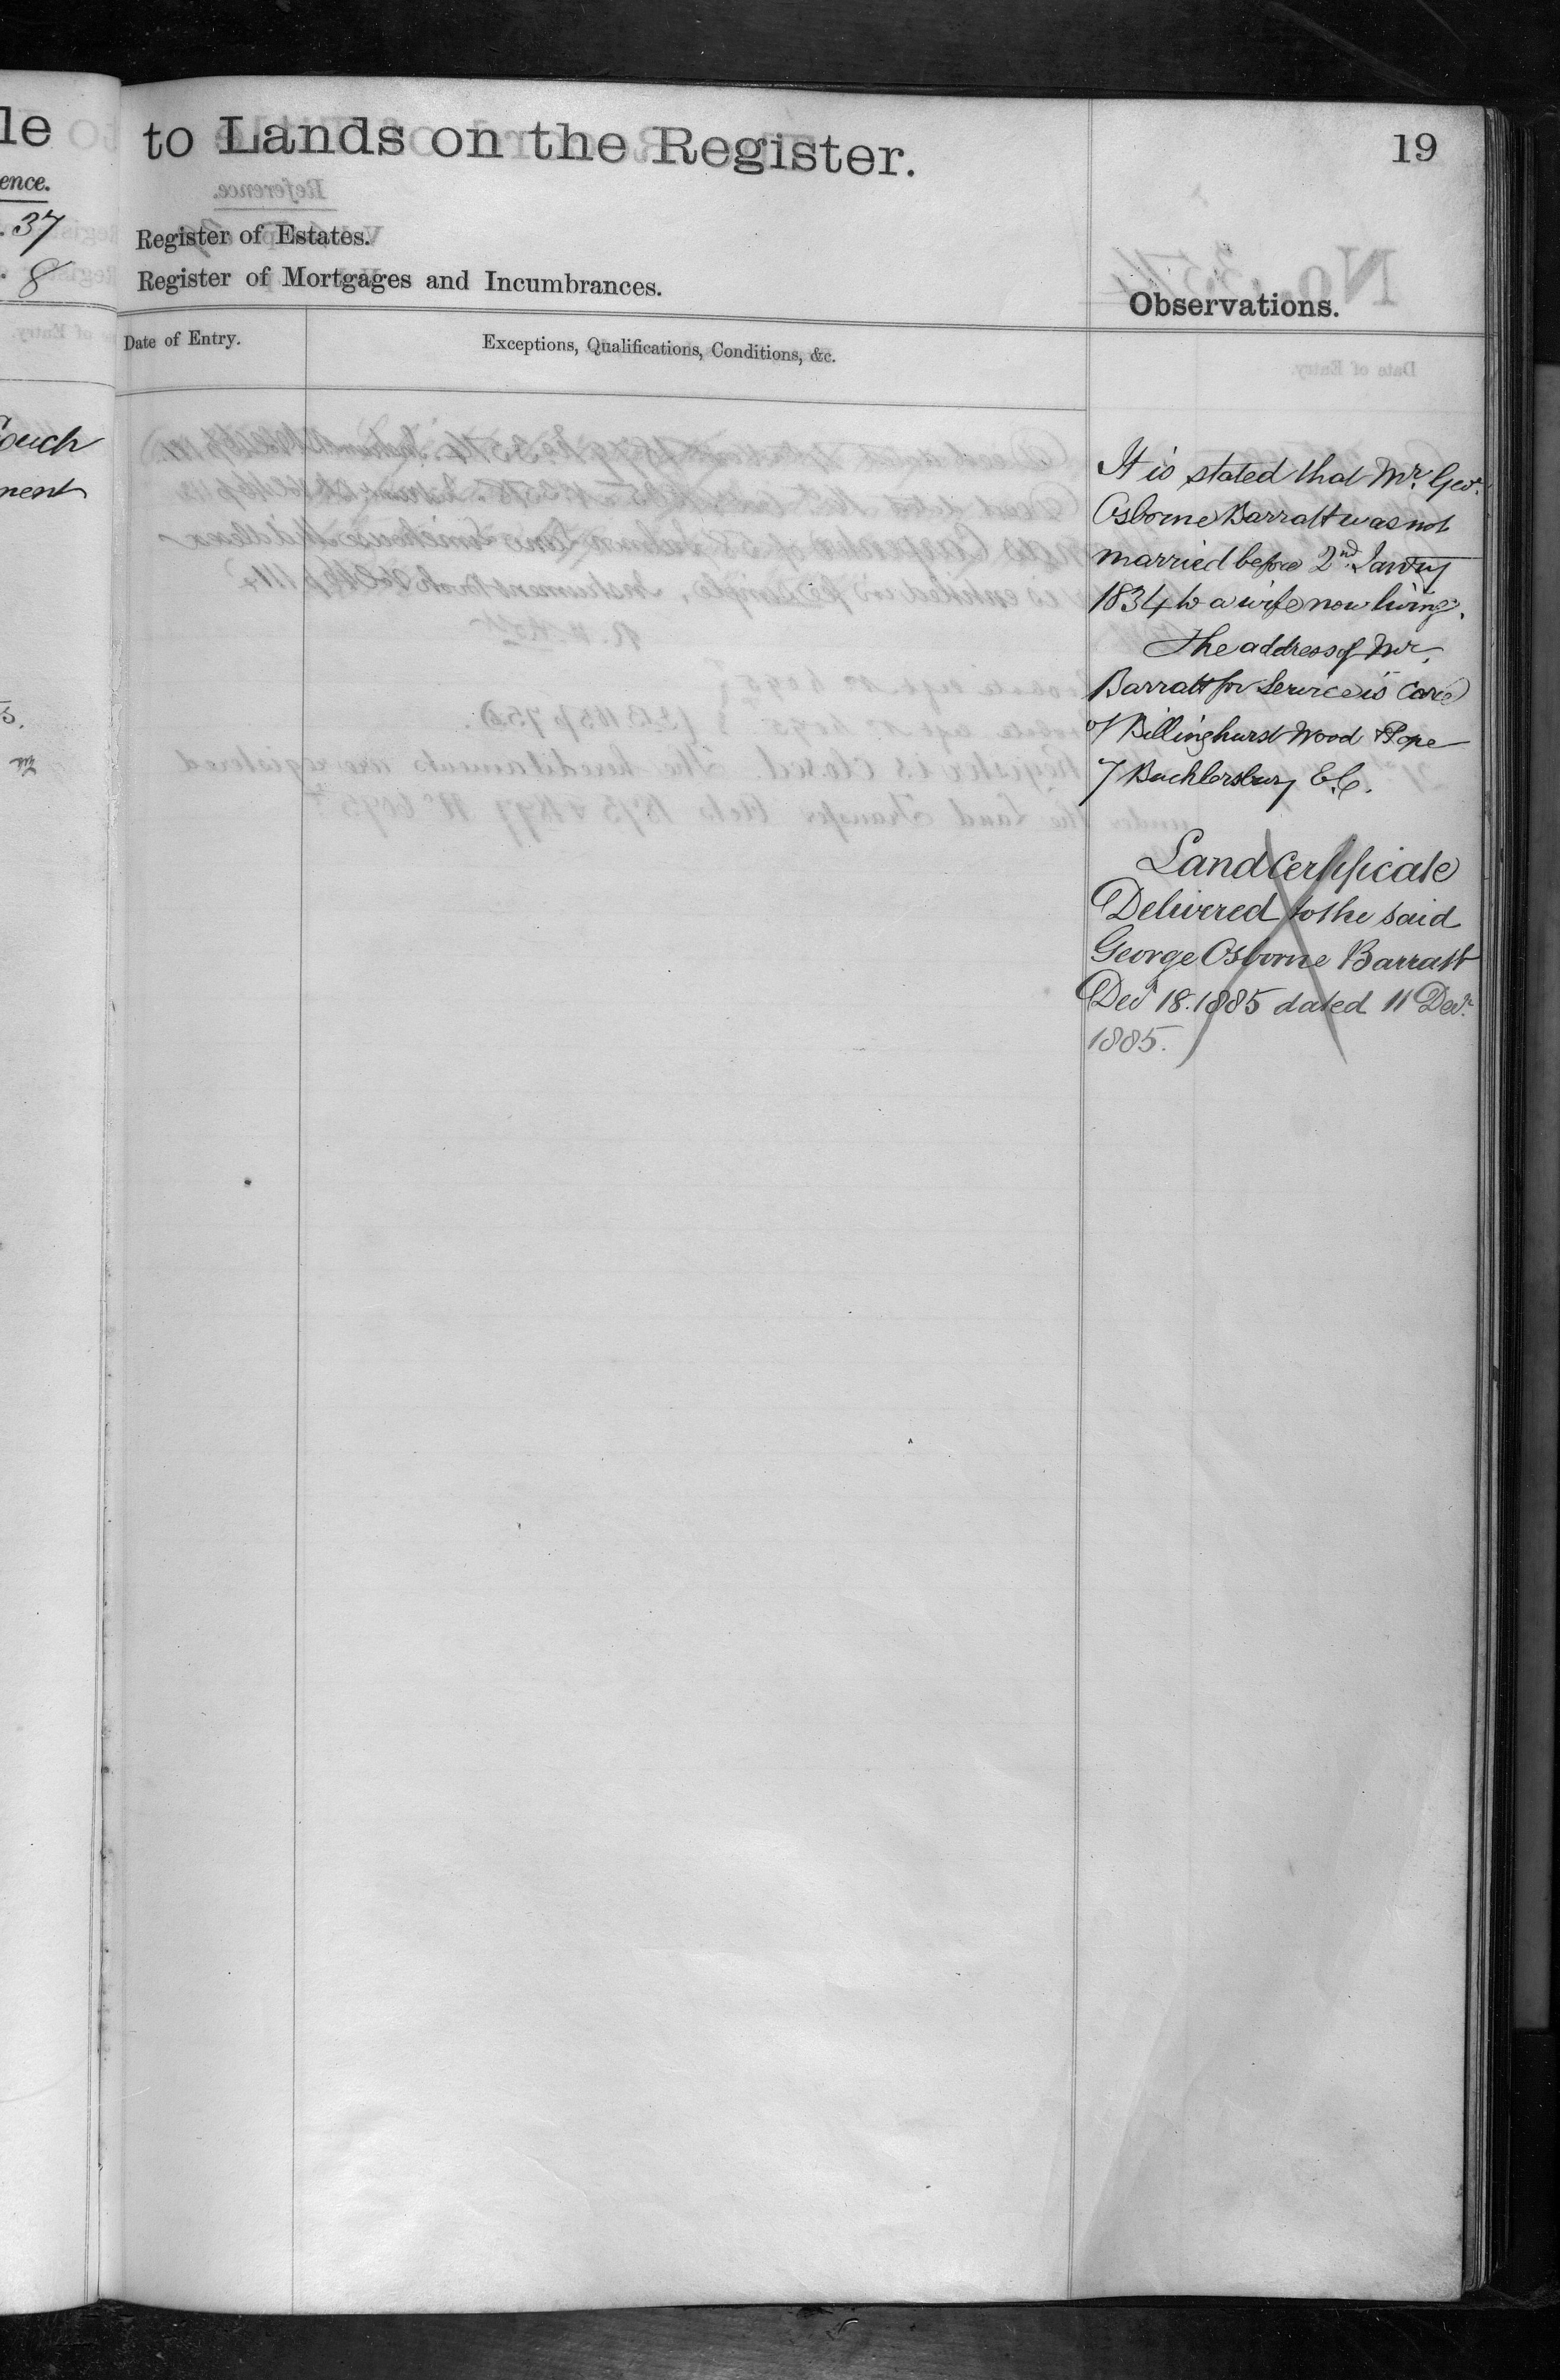 le
ence.
. 37
. 8
ouch
ment
to Lands on the Register.
19
Register of Estates.
Register of Mortgages and Incumbrances.
Observations.
Date of Entry.
Exceptions, Qualifications, Conditions, &c.
It is stated that Mr. Geo.
Osborne Barratt was not
married before 2nd. Janry
1834 to a wife now living.
The address of Mr.
Barratt for Service is Care
of Billinghurst Wood & Pope
7 Bucklersbury E.C.
Land Certificate
Delivered to the said
George Osborne Barratt
Decr 18. 1885 dated 11 Decr.
1885.